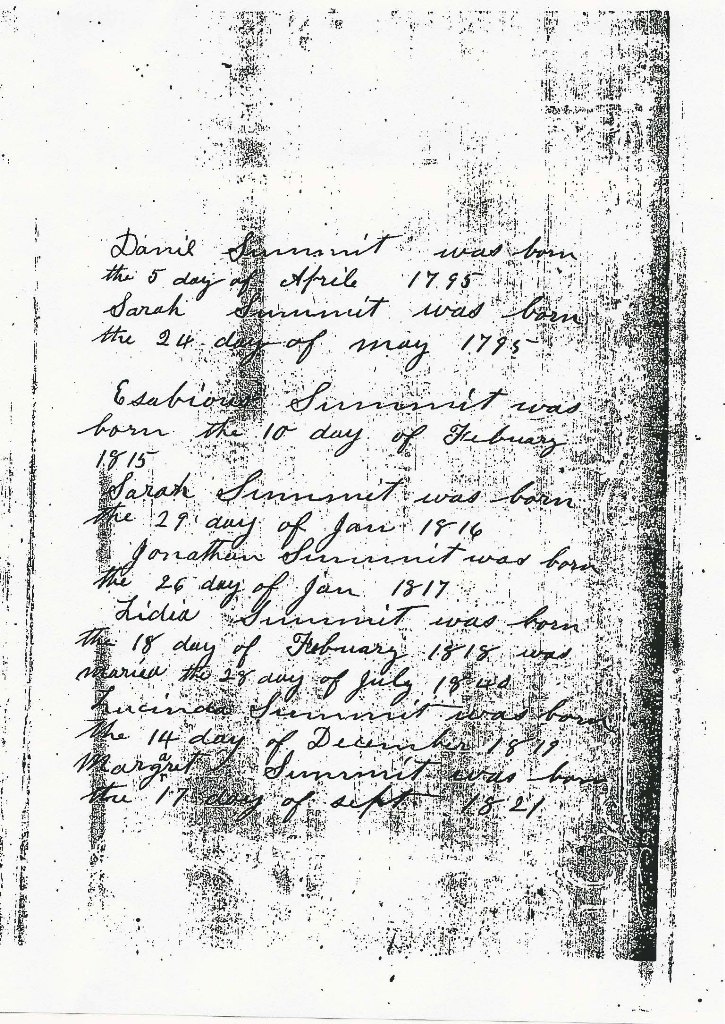 Daniel Summit was born
the 5 day of Aprile 1795
Sarah Summit was born
the 24 day of may 1795
Esabious Summit was
born the 10 day of Febuary
1815
Sarah Summit was born
the 29 day of Jan 1816
Jonathan Summit was born
the 26 day of Jan 1817
Lidia Summit was born
the 18 day of Febuary 1818 was
maried the 28 day of July 1840
Lucinda Summit was born
the 14 day of December 1819
Margaret Summit was born
the 17 day of sept 1821